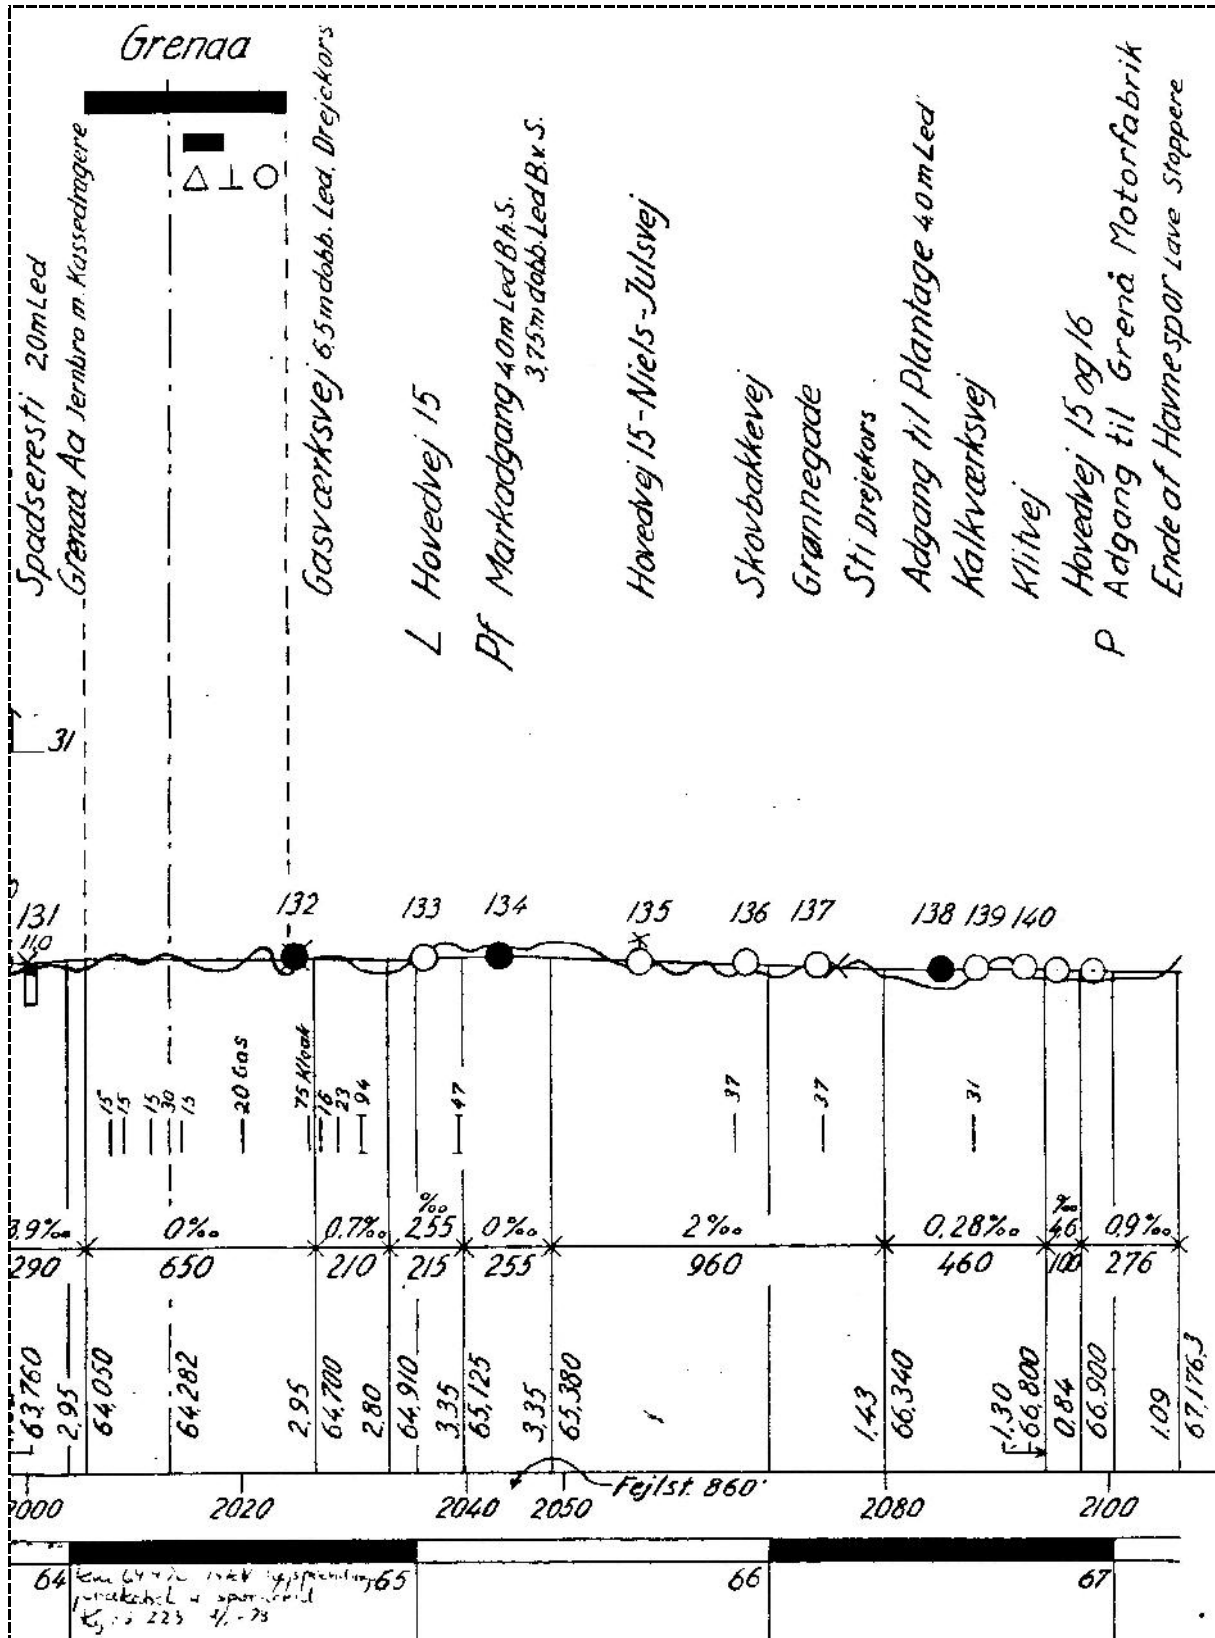 Grenaa
Spadseresti 2.0m Led
Grenaa Aa Jernbro m. Kassedragere
Gasværksvej 6.5m dobb. Led, Drejekors
L Hovedvej 15
Pf Markadgang 4.0m Led B.h.S.
3,75m dobb. Led B.v.S.
Hovedvej 15-Niels-Julsvej
Skovbakkevej
Grønnegade
Sti Drejekors
Adgang til Plantage 4.0m Led
Kalkværksvej
Klitvej
Hovedvej 15 og 16
P Adgang til Grenå Motorfabrik
Ende af Havnespor Lave Stoppere
31
131 132 133 134 135 136 137 138 139 140
11,0
15 15 15 30 15 20 Gas 75 Kloak 16 23 94 47 37 37 31
3,9‰ 0‰ 0,7‰ ‰ 2,55 0‰ 2‰ 0,28‰ ‰ 4,6 0,9‰
290 650 210 215 255 960 460 100 276
63,760 2,95 64,050 64,282 2,95 64,700 2,80 64,910 3,35 65,125 3,35 65,380 1,43 66,340 1,30 66,800 0,84 66,900 1,09 67,176,3
Fejlst. 860'
2000 2020 2040 2050 2080 2100
64 65 66 67